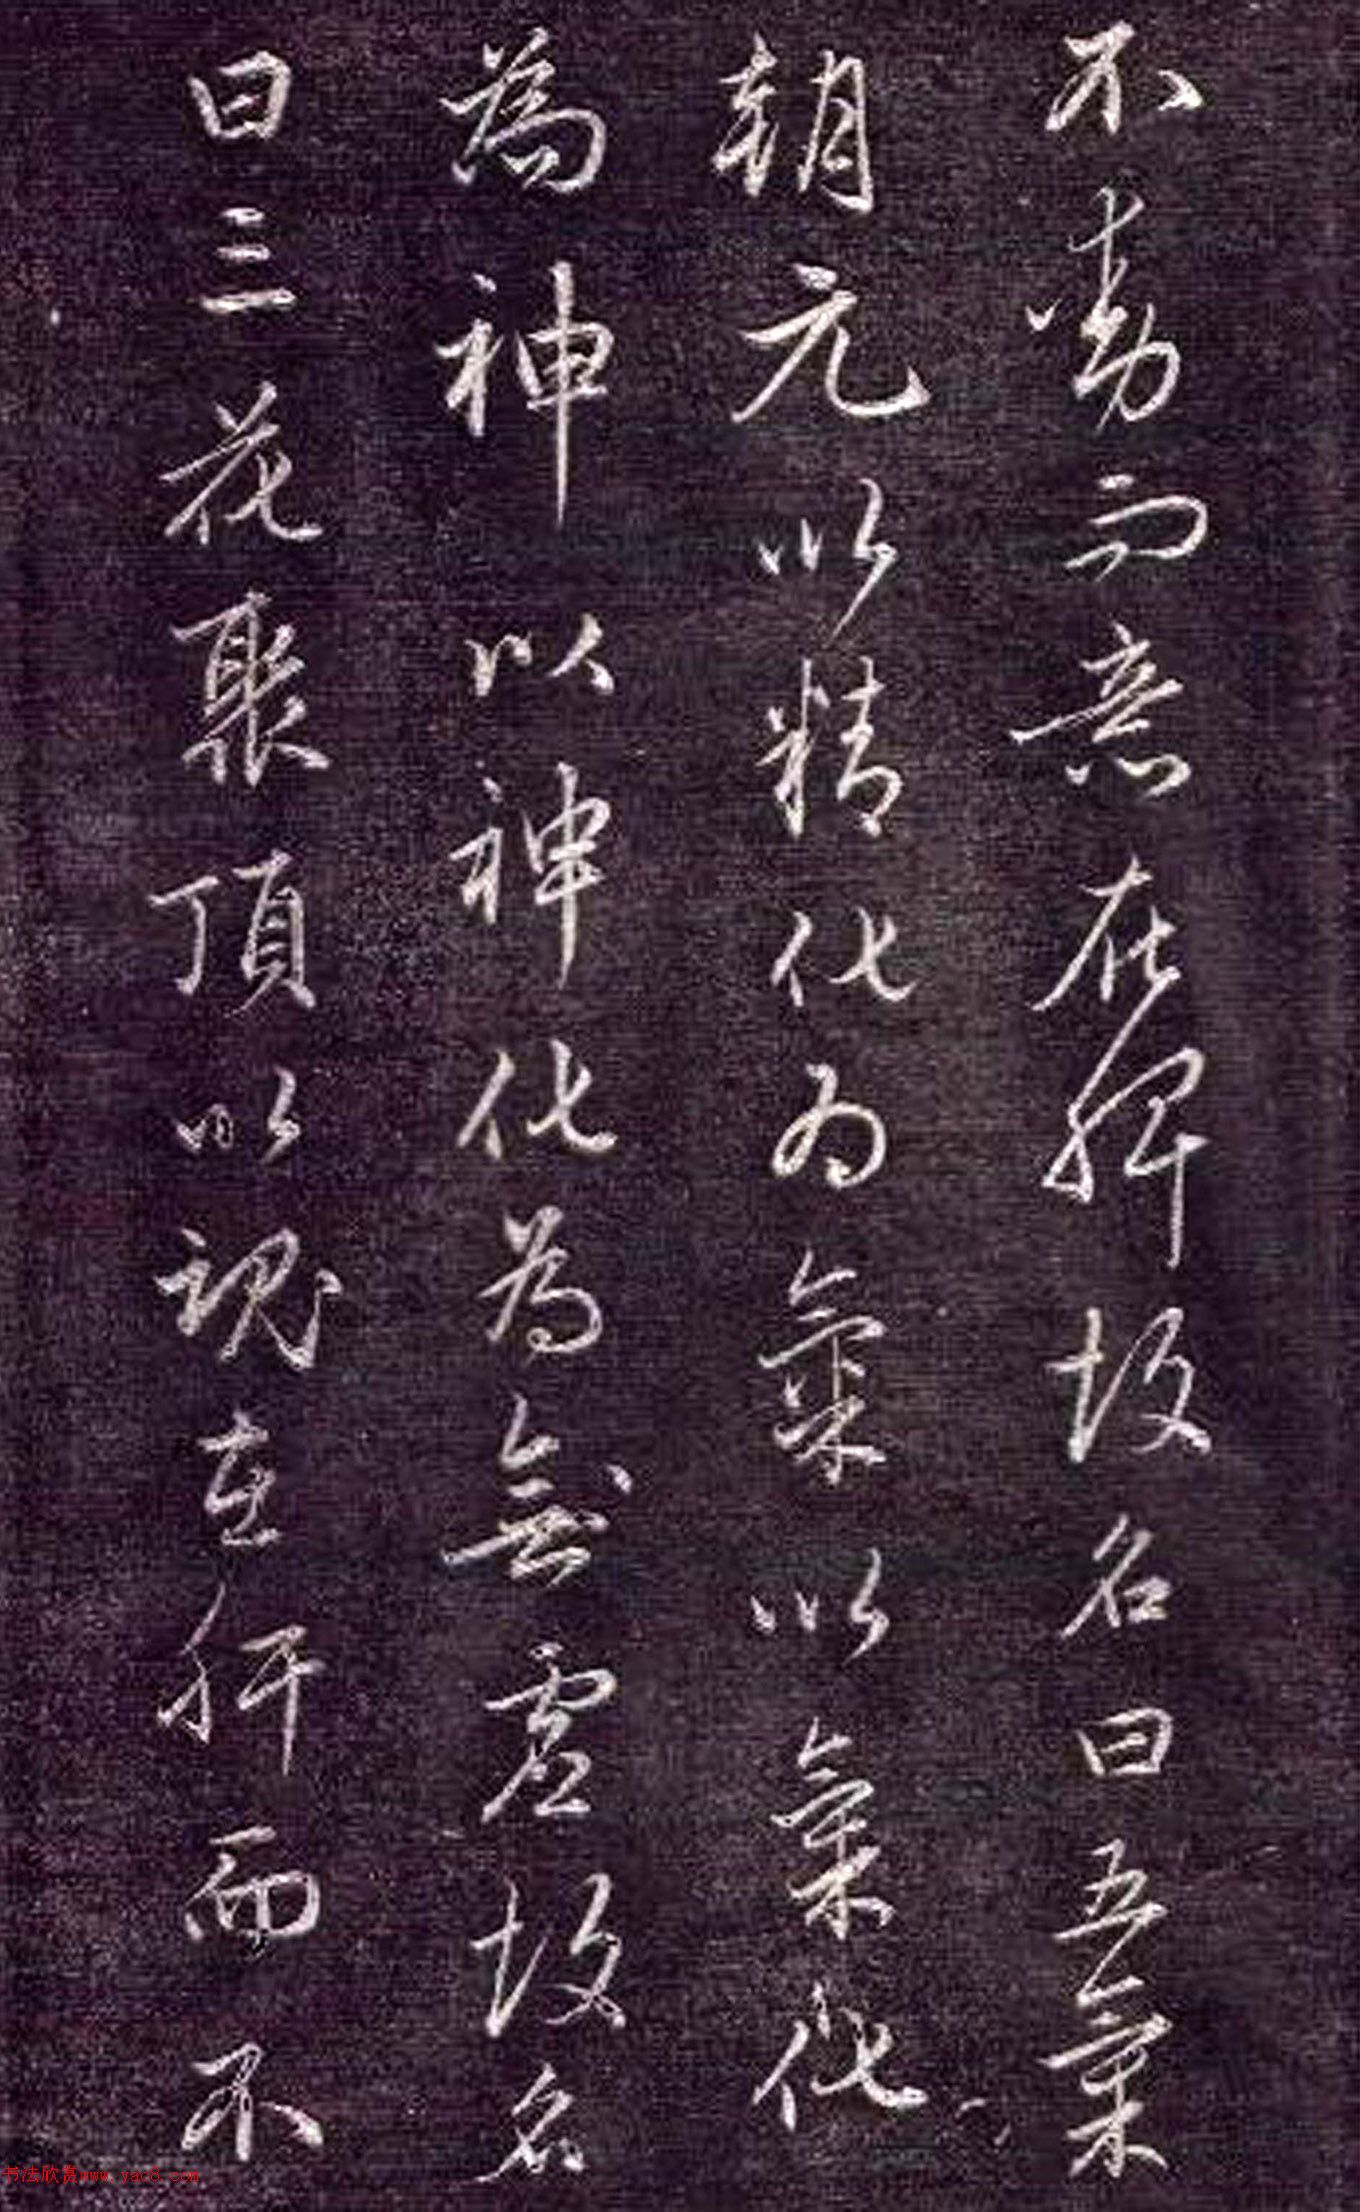 不動而意在脾故名曰五氣
朝元以精化為氣以氣化
為神以神化為無虛故名
曰三花聚頂以魂在肝而不
书法欣赏www.yac8.com